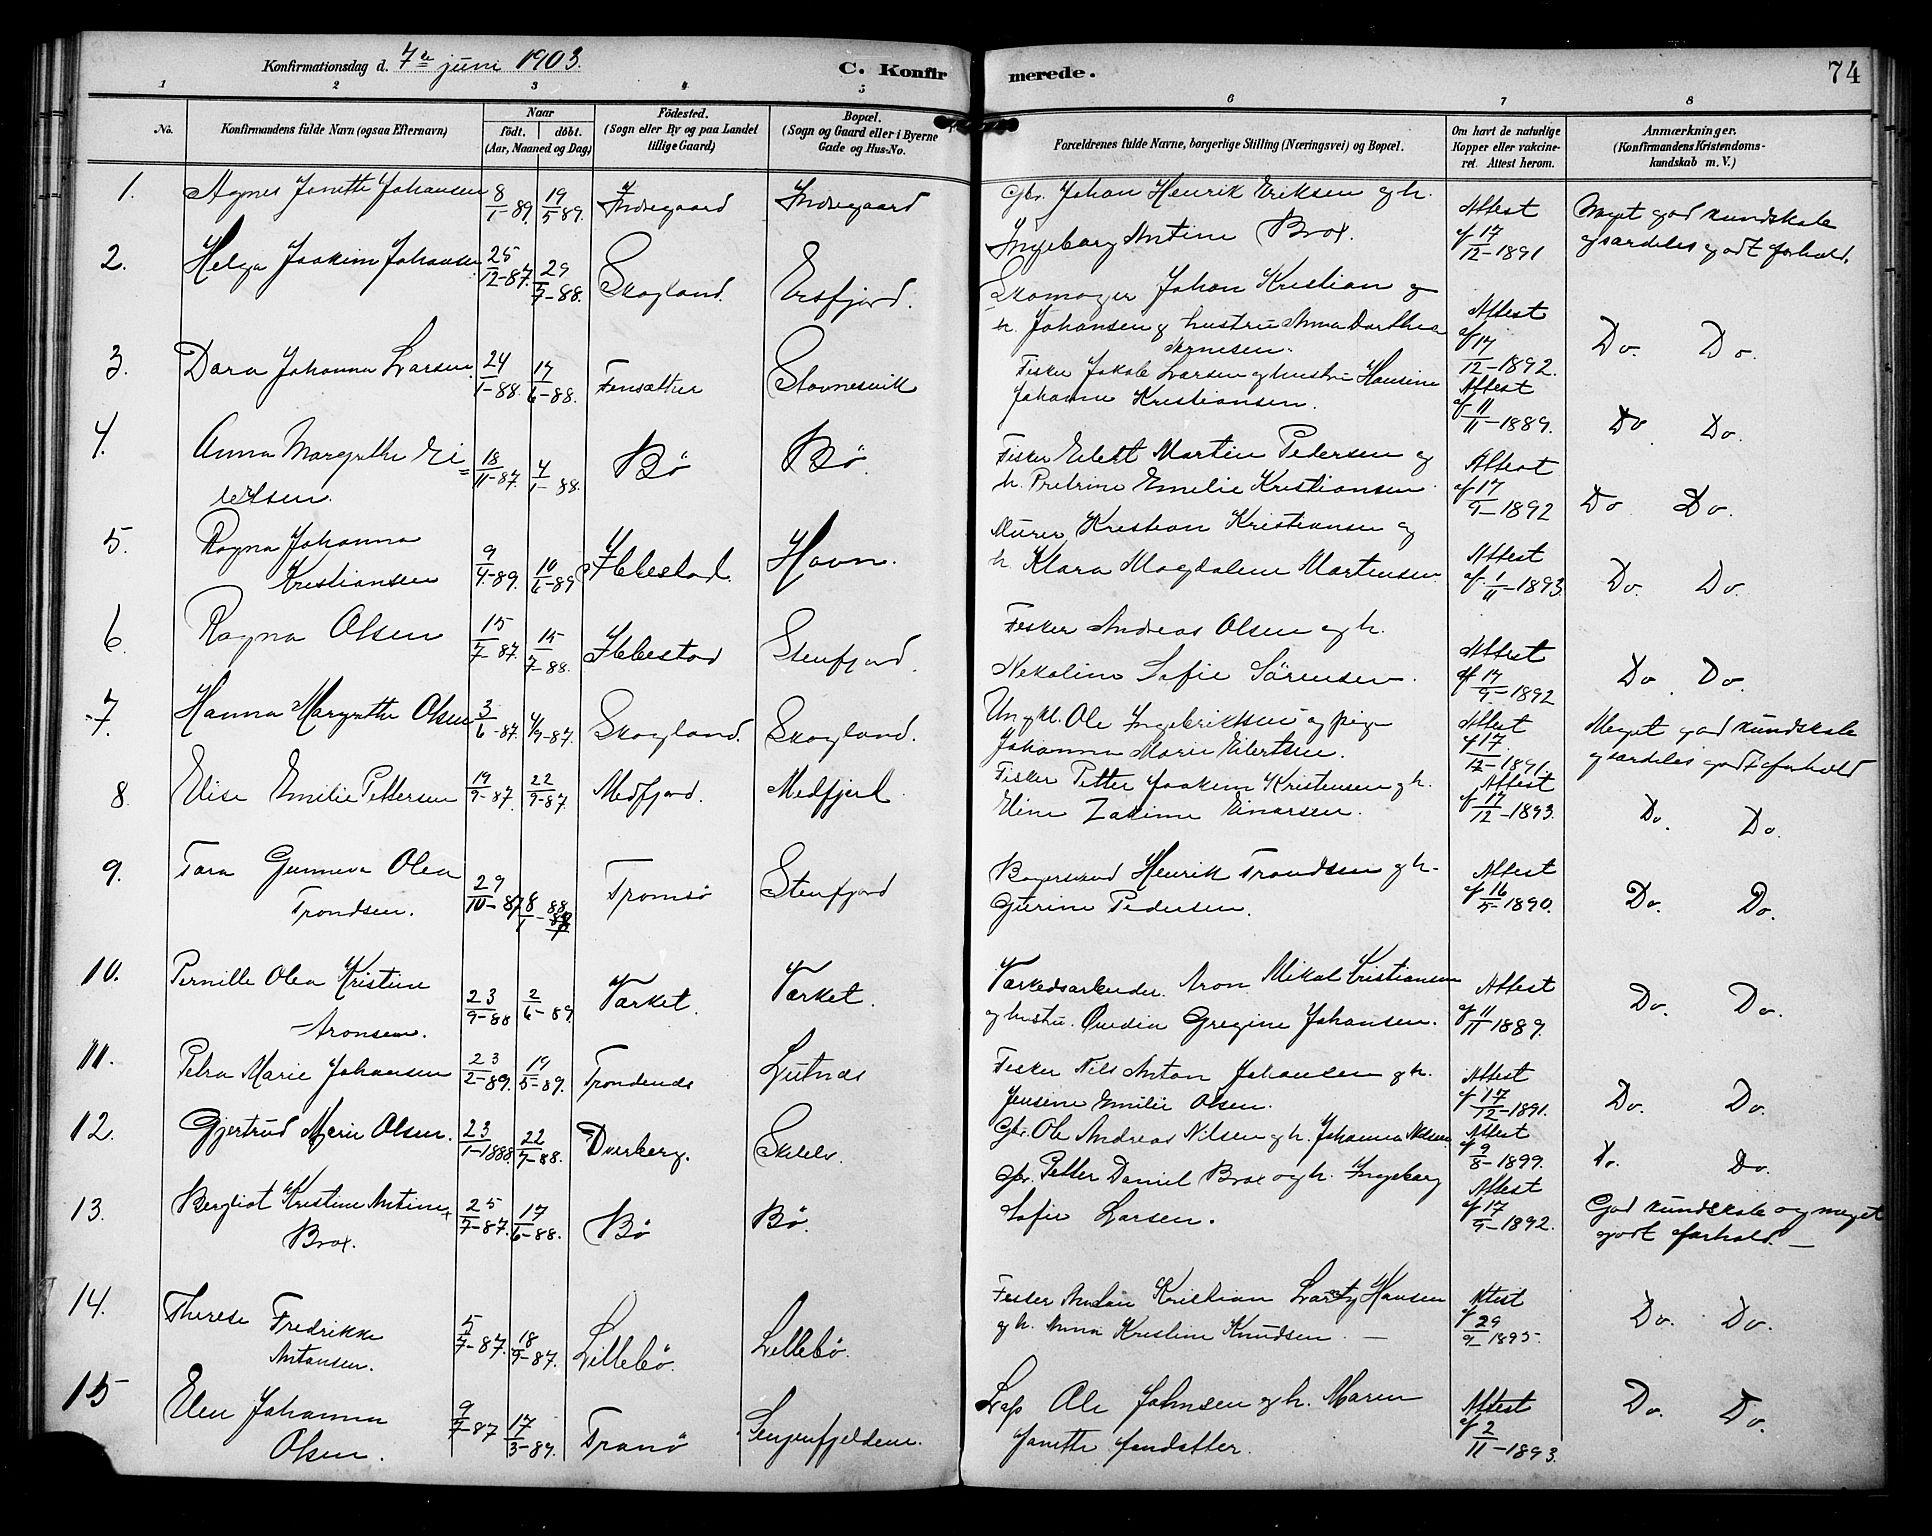 Konfirmationsdag d. 7de juni 1903.
C. Konfirmerede.
74
1 2 3 4 5 6 7 8
No.
Konfirmandens fulde Navn (ogsaa Efternavn)
Naar
födt. döbt.
(Aar, Maaned og Dag)
Födested.
(Sogn eller By og paa Landet
tillige Gaard)
Bopæl.
(Sogn og Gaard eller i Byerne
Gade og Hus-No.
Forældrenes fulde Navne, borgerlige Stilling (Næringsvei) og Bopæl.
Om havt de naturlige
Kopper eller vakcine-
ret. Attest herom.
Anmærkninger.
(Konfirmandens Kristendoms-
kundskab m. V.)
1. Agnes Janette Johansen 8/1-89. 19/5-89. Indregaard Indregaard Gbr. Johan Henrik Eriksen og h. Attest Meget god kundskab
Ingeborg Antine Brox. af 17/12-1891 og særdeles godt forhold.
2. Helga Joakim Johansen 25/12-87. 29/7-88. Skogland. Ersfjord. Skomager Johan Kristian og
h. Johansen og hustru Anna Dorthea Attest af 17/12-1892. Do. Do.
Arnesen.
3. Dara Johanna Larsen 24/1-88. 17/6-88. Finsæther Stavnesvik Fisker Jakob Larsen og hustru Hansine Attest
Johanne Kristiansen. af 11/11-1889. Do. Do.
4. Anna Margrethe Ei= 18/11-87. 4/1-88. Bö Bö. Fisker Eilert Martin Pedersen og Attest
lertsen. h. Petrine Emelie Kristiansen af 17/9-1892 Do Do.
5. Ragna Johanna 9/4-89. 10/6-89 Ibbestad. Havn. Murer Kristian Kristiansen og Attest
Kristiansen h. Klara Magdalene Martensen af 1/11-1893. Do. Do.
6. Ragna Olsen 15/7-87. 15/7-88. Ibbestad Stenfjord. Fisker Andreas Olsen og h. Attest
Nekoline Sofie Sörensen. af 17/9-1892 Do. Do.
7. Hanna Margrethe Olsen 3/6-87. 4/9-87. Skogland. Skogland. Ungkl. Ole Ingebriktsen og pige Attest Meget god kundskab
Johanna Marie Eilertsen. af 17/12-1891. og særdeles godt forhold
8. Elise Emilie Pettersen 19/9-87. 22/9-87. Medfjord. Medfjord. Fisker Petter Joakim Kristensen og h. Attest
Eline Zakine Einarsen. af 17/12-1893. Do. Do.
9. Tora Gunneva Olea 29/10-87 8/1-88 Tromsö Stenfjord Henrik Trondsen og h. Attest
Trondsen. Gurine Pedersen. af 16/5-1890. Do. Do.
10. Pernille Olea Kristine 23/9-88 2/6-89. Værket. Værket. Værkedsarbeider Aron Mikal Cristiansen Attest
Aronsen. og hustru Gregine Johansen. af 11/11 1889. Do. Do.
11. Petra Marie Johansen 23/2-89. 19/5-89. Trondenæs Lutnæs Fisker Nils Anton Johansen og h. Attest
Jensine Emilie Olsen. af 17/12-1891. Do. Do.
12. Gjertrud Marie Olsen. 23/1-1888. 22/7-88. Dverberg. Gbr. Ole Andreas Nilsen og h. Johanna Nilsen Attest af 9/8-1899. Do. Do.
13. Bergliot Kristine Antine 25/7-87. 17/6-88. Bö Bö. Gbr. Petter Daniel Brox og h. Ingeborg Attest God kundskab og meget
Brox. Sofie Larsen. af 17/9-1892. godt forhold.—
14. Therese Fredrikke 5/7-87. 18/9-87. Lillebö. Lillebö. Fisker Anton Kristian Hansen Attest
Antonsen. og h. Anna Kristine Knudsen.— af 29/9 1895. Do. Do.
15 Elen Johanna 9/7-87 17/3-89. Tranö Senjenfjeldene. Lap Ole Johnsen og h. Maren Attest Do. Do.
Olsen. Janette af 2/11-1893.